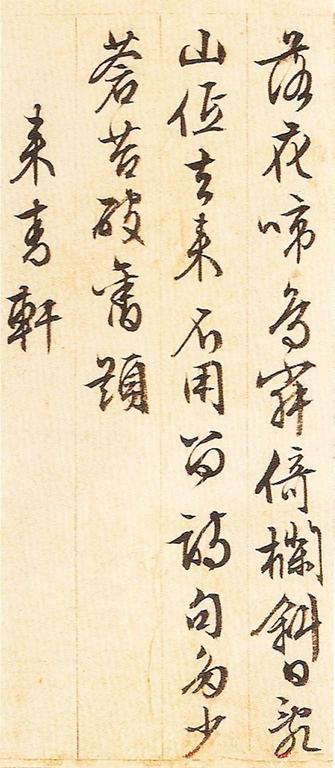 落花啼鳥倚欄斜日亂
山低去來不用留詩句多少
蒼苔破舊題
來青軒